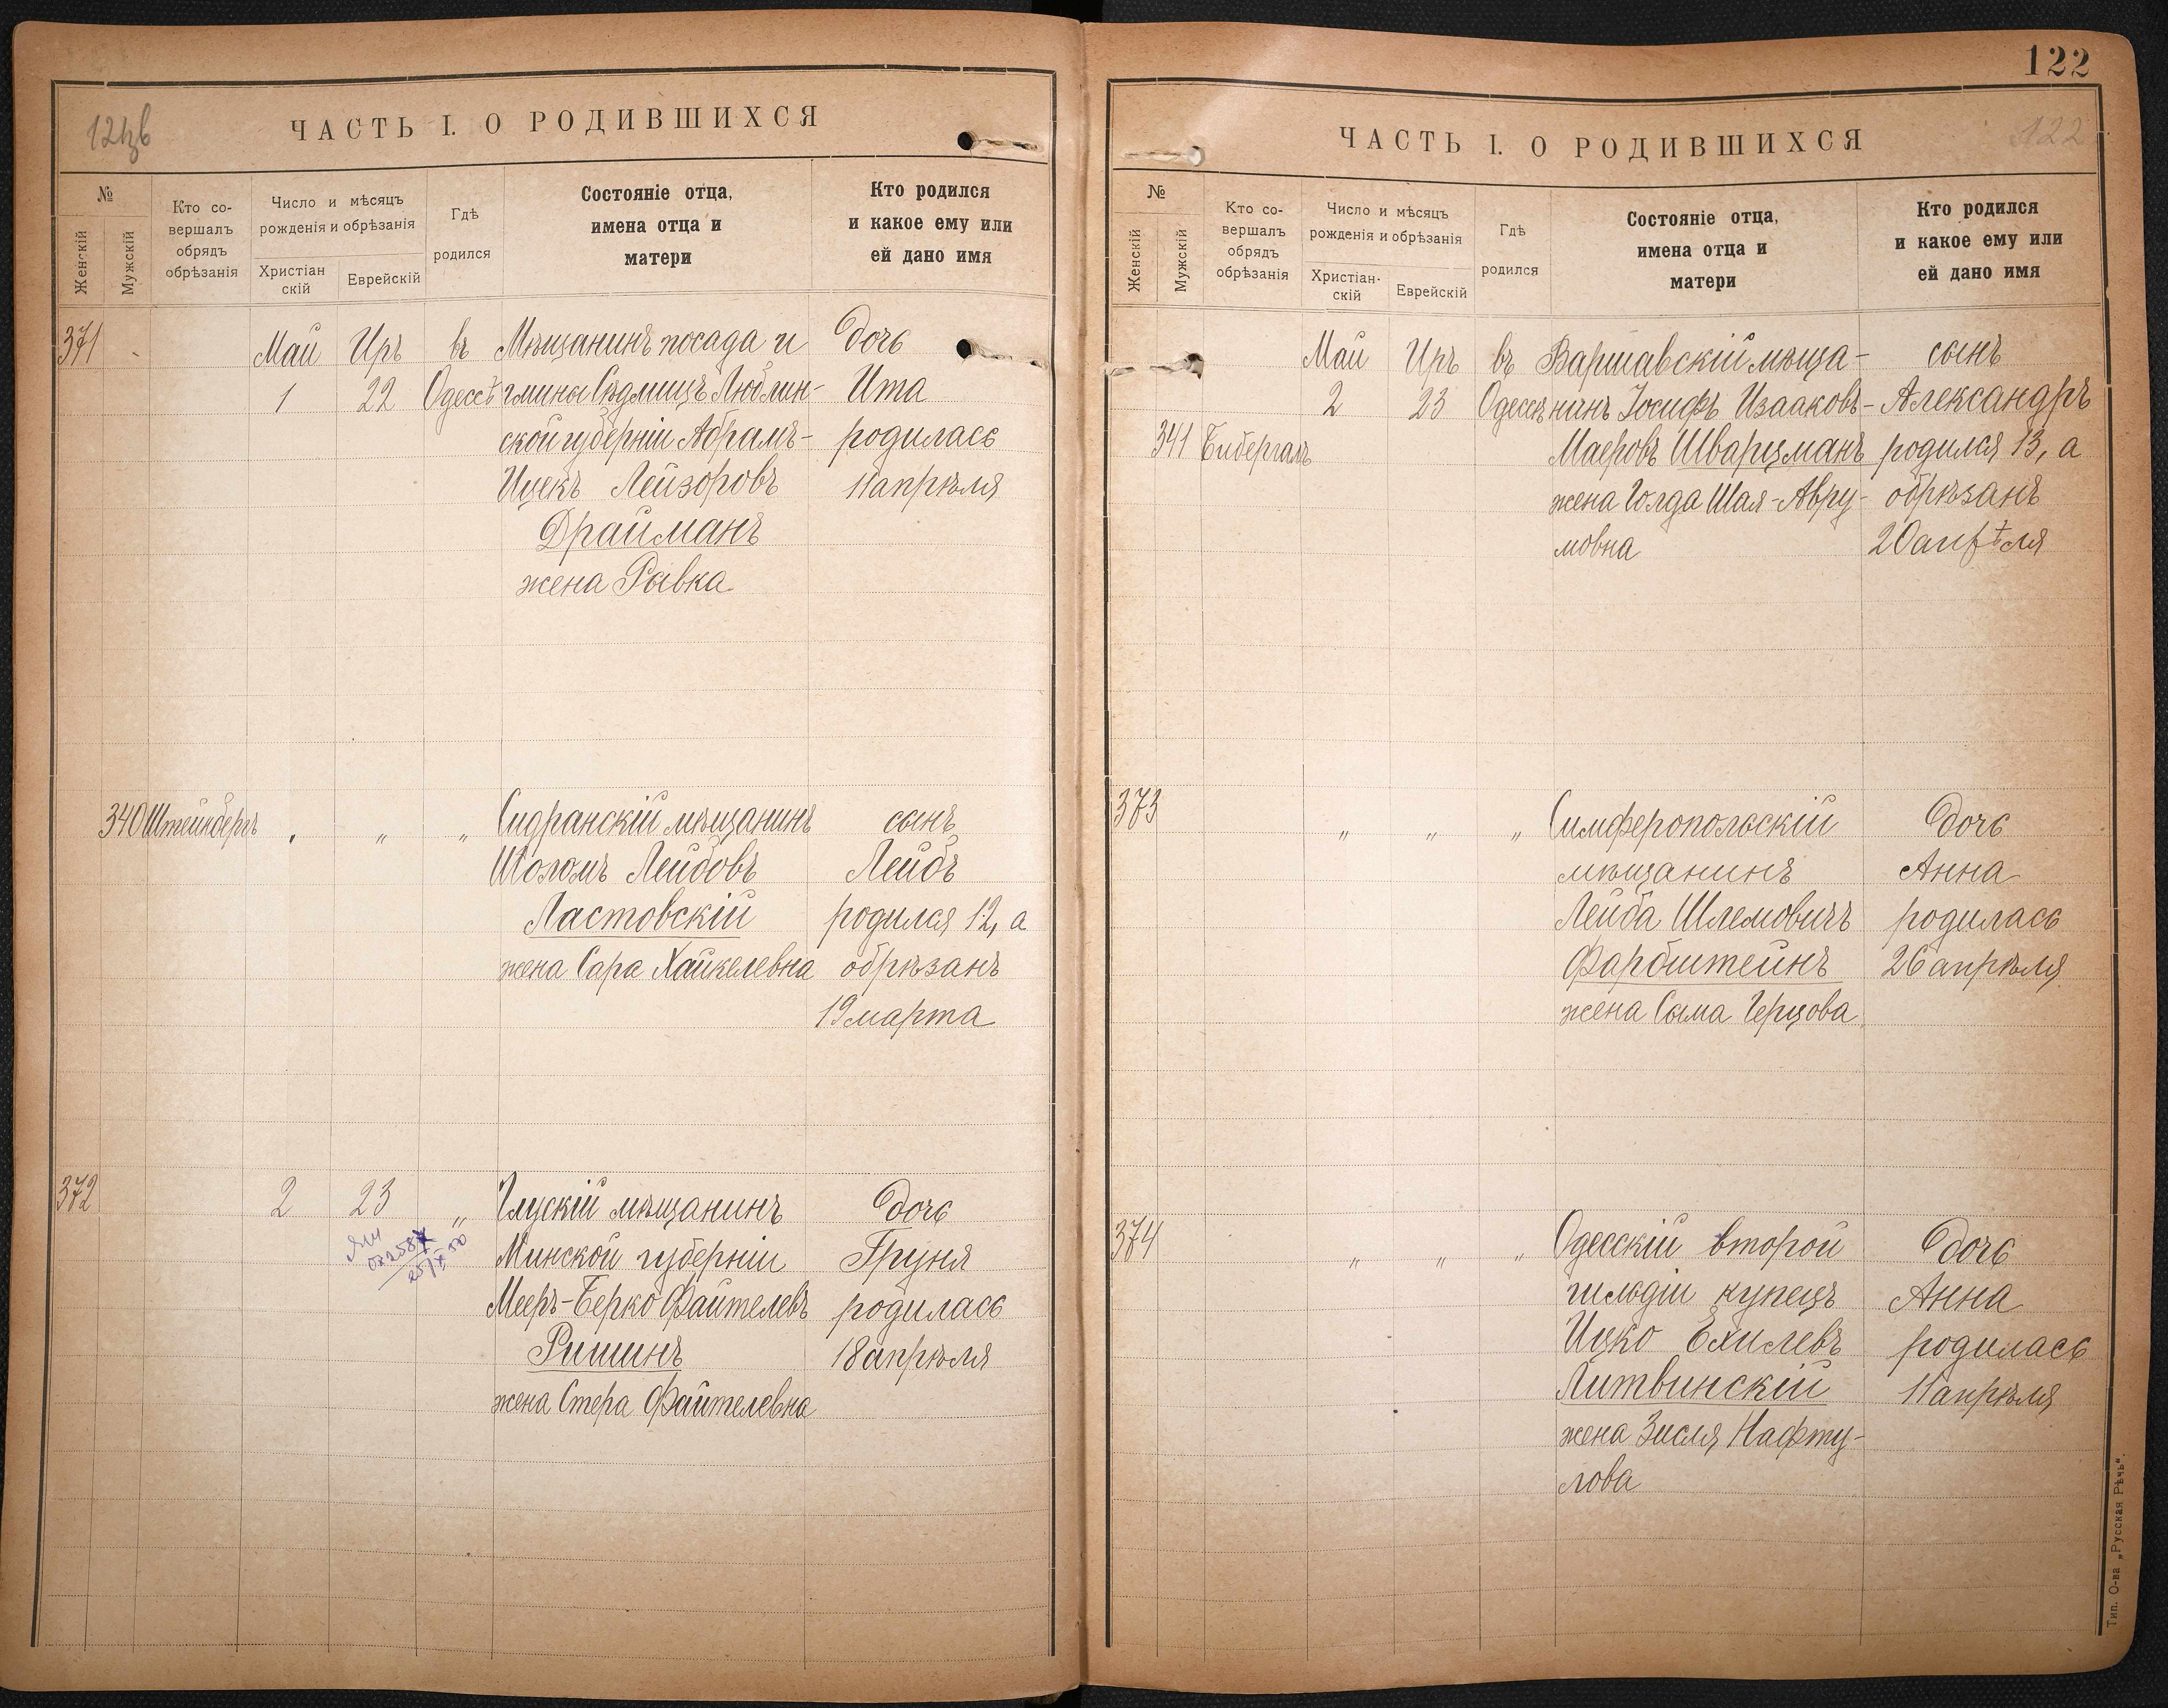 121зв
ЧАСТЬ I. О РОДИВШИХСЯ
№
Женскій
Мужскій
Кто со-
вершалъ
обрядъ
обрѣзанія
Число и мѣсяцъ
рожденія и обрѣзанія
Христіан
скій
Еврейскій
Гдѣ
родился
Состояніе отца,
имена отца и
матери
Кто родился
и какое ему или
ей дано имя
371 Май Иръ въ Мѣщанинъ посада и дочь
1 22 Одессѣ гмины Сѣдлищъ Люблин- Ита
ской губерніи Абрамъ- родилась
Ицекъ Лейзоровъ 11 апрѣля
Драйманъ
жена Рывка
340 Штейнбергъ " " " Сидранскій мѣщанинъ сынъ
Шоломъ Лейбовъ Лейбъ
Ластовскій родился 12, а
жена Сара Хайкелевна обрѣзанъ
19 марта
372 2 23 " Глускій мѣщанинъ дочь
Минской губерніи Груня
Мееръ-Берко Файтелевъ родилась
Ришинъ 18 апрѣля
жена Стера Файтелевна
122
ЧАСТЬ I. О РОДИВШИХСЯ
122
№
Женскій
Мужскій
Кто со-
вершалъ
обрядъ
обрѣзанія
Число и мѣсяцъ
рожденія и обрѣзанія
Христіан-
скій
Еврейскій
Гдѣ
родился
Состояніе отца,
имена отца и
матери
Кто родился
и какое ему или
ей дано имя
Май Иръ въ Варшавскій мѣща- сынъ
2 23 Одессѣ нинъ Іосифъ Изааковъ- Александръ
341 Бибергалъ Маеровъ Шварцманъ родился 13, а
жена Голда Шая-Авру- обрѣзанъ
мовна 20 апрѣля
373 " " " Симферопольскій дочь
мѣщанинъ Анна
Лейба Шлемовичъ родилась
Фарбштейнъ 26 апрѣля
жена Сыма Герцова
374 " " " Одесскій второй дочь
гильдіи купецъ Анна
Ицко Ехилевъ родилась
Литвинскій 11 апрѣля
жена Зисля Нафту-
лова
Тип. О-ва „Русская Рѣчь".